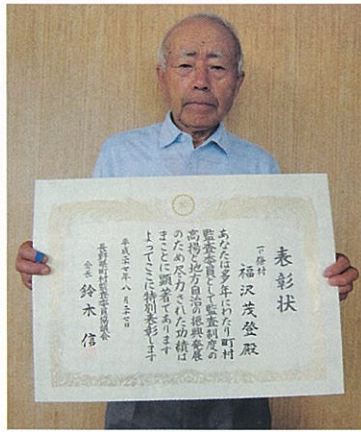 表彰状
下條村
福沢茂登殿
あなたは多年にわたり町村
監査委員として監査制度の
高揚と地方自治の振興発展
のため尽力された功績は
まことに顕著であります
よってここに特別表彰します
平成二十七年八月二十七日
長野県町村監査委員協議会
会長 鈴木信